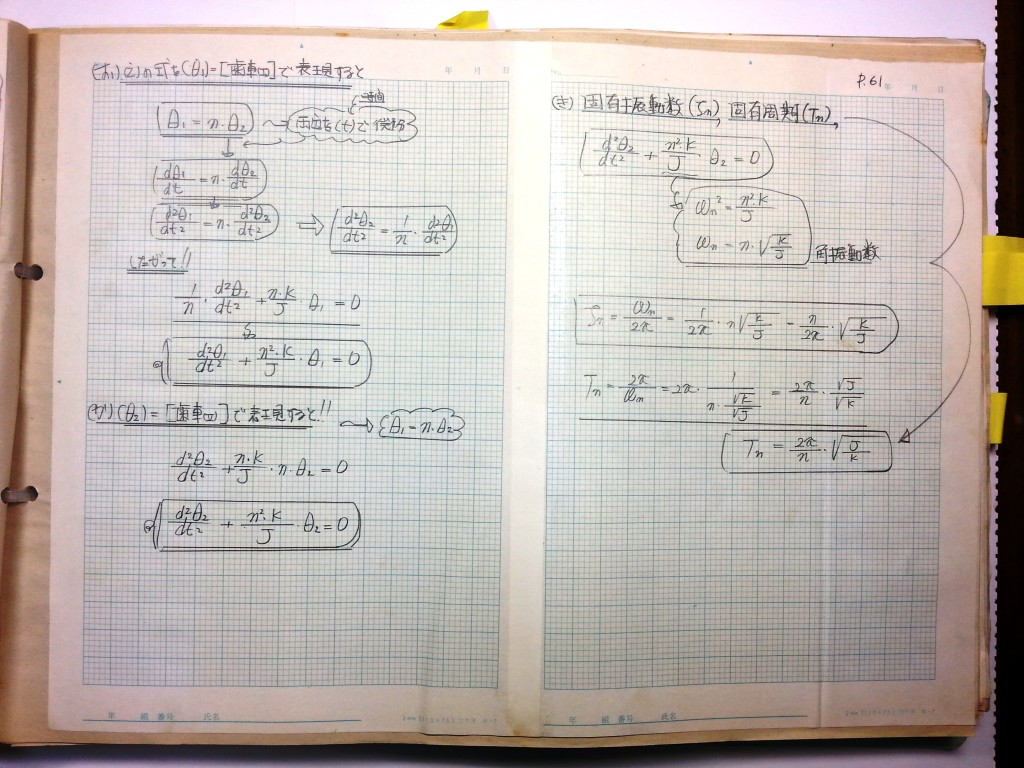 (お) (え)の式を(θ₁)=[歯車Ⅰ]で表現すると
θ₁ = n・θ₂
時間
両辺を(t)で微分
dθ₁/dt = n・dθ₂/dt
d²θ₁/dt² = n・d²θ₂/dt² ⇒ d²θ₂/dt² = 1/n・d²θ₁/dt²
したがって!!
1/n・d²θ₁/dt² + n・k/J θ₁ = 0
d²θ₁/dt² + n²・k/J・θ₁ = 0
(か) (θ₂) = [歯車Ⅱ]で表現すると!!
θ₁ = n・θ₂
d²θ₂/dt² + n・k/J・n・θ₂ = 0
d²θ₂/dt² + n²・k/J・θ₂ = 0
年 組 番号 氏名
P.61
年 月 日
(き) 固有振動数(fn), 固有周期(Tn),
d²θ₂/dt² + n²・k/J・θ₂ = 0
ωn² = n²・k/J
ωn = n・√(k/J) 角振動数
fn = ωn/2π = 1/2π・n√(k/J) = n/2π・√(k/J)
Tn = 2π/ωn = 2π・1/(n・√k/√J) = 2π/n・√J/√k
Tn = 2π/n・√(J/k)
年 組 番号 氏名